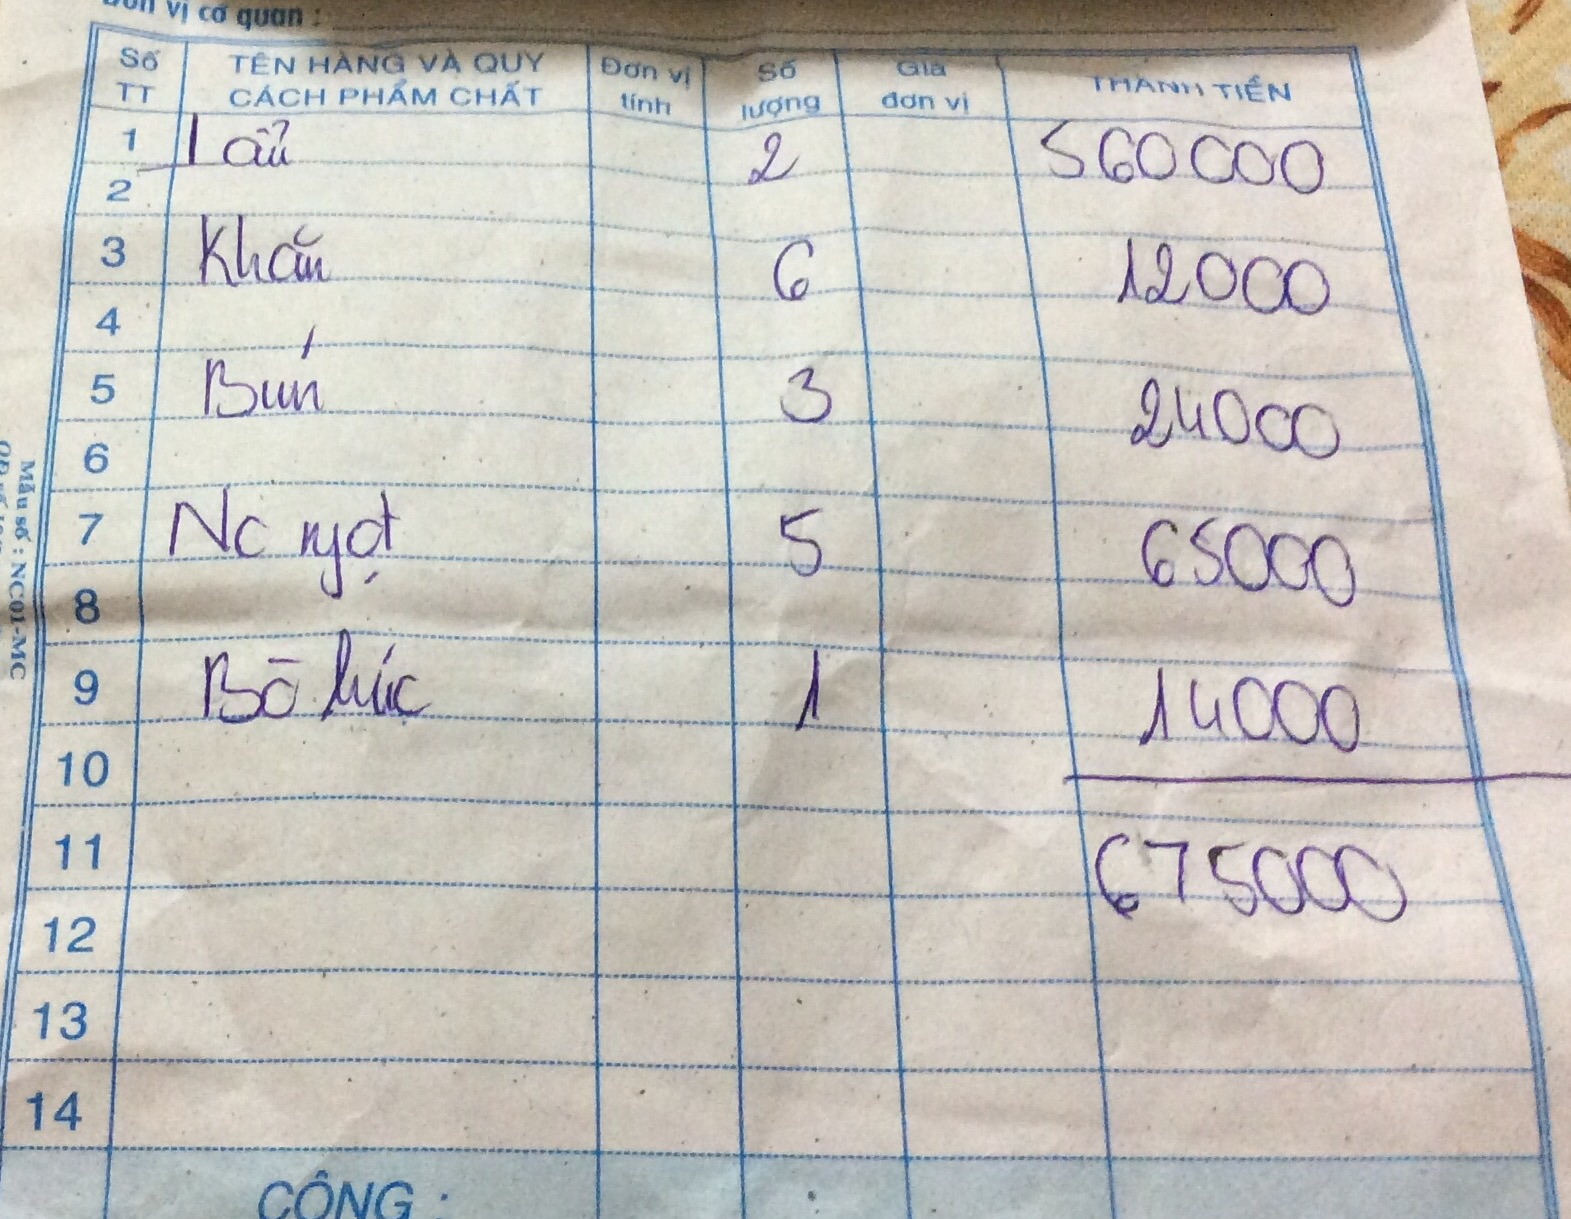 Đơn vị cơ quan :
Số TT TÊN HÀNG VÀ QUY CÁCH PHẨM CHẤT Đơn vị tính Số lượng Giá đơn vị THÀNH TIỀN
1 Lẩu 2 560000
2
3 Khăn 6 12000
4
5 Bún 3 24000
6
7 Nc ngọt 5 65000
8
9 Bò húc 1 14000
10
11 675000
12
13
14
CỘNG :
Mẫu số : NC01-MC